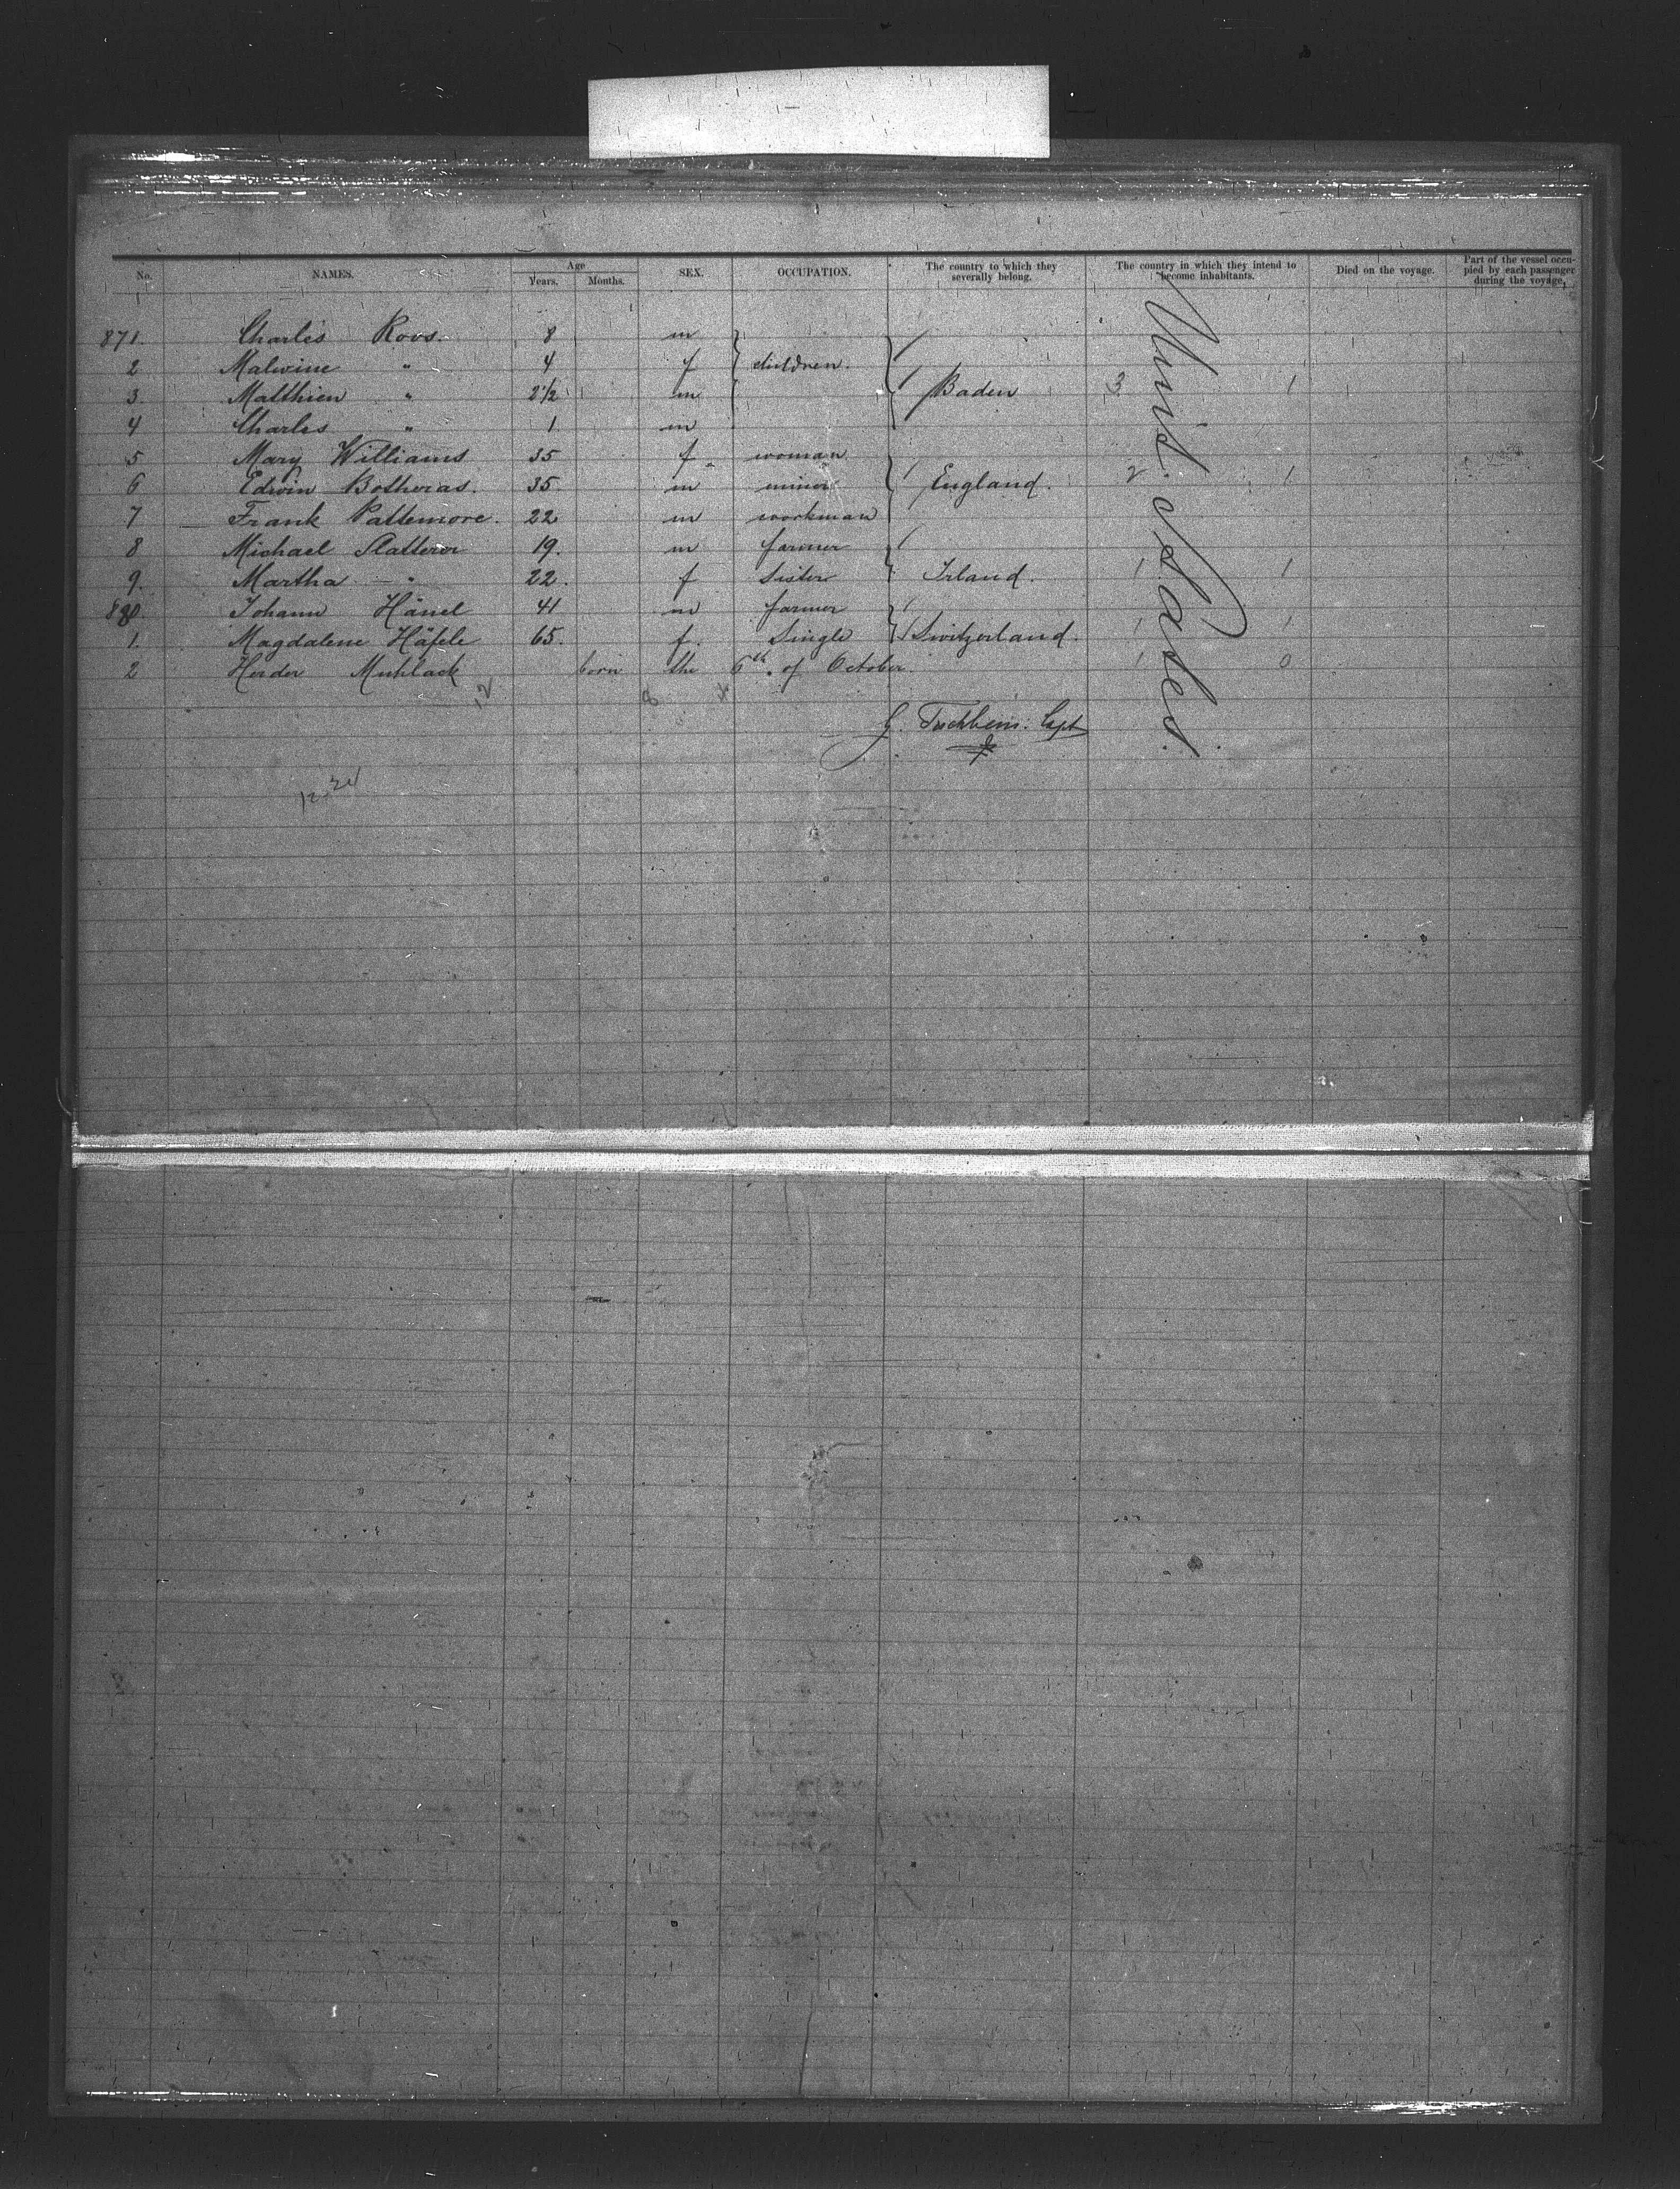 No. NAMES. Age Years. Months. SEX. OCCUPATION. The country to which they severally belong. The country in which they intend to become inhabitants. Died on the voyage. Part of the vessel occupied by each passenger during the voyage.
871. Charles Roos. 8 m
2 Malwine " 4 f children.
3. Matthieu " 2 1/2 m Baden 3 1
4 Charles " 1 m
5 Mary Williams 35 f woman
6 Edwin Botheras. 35 m miner England. 2 1
7 Frank Pattemore. 22 m workman
8 Michael 19. m farmer
9. Martha " 22. f sister Irland. 1 1
880. Johann Hänel 41 m farmer
1. Magdalene Häfele 65. f. single Switzerland. 1 1
2 Herder Muhlack born the 6th of October. 1 0
Unit. States.
12 8 4
G. Capt
12.24